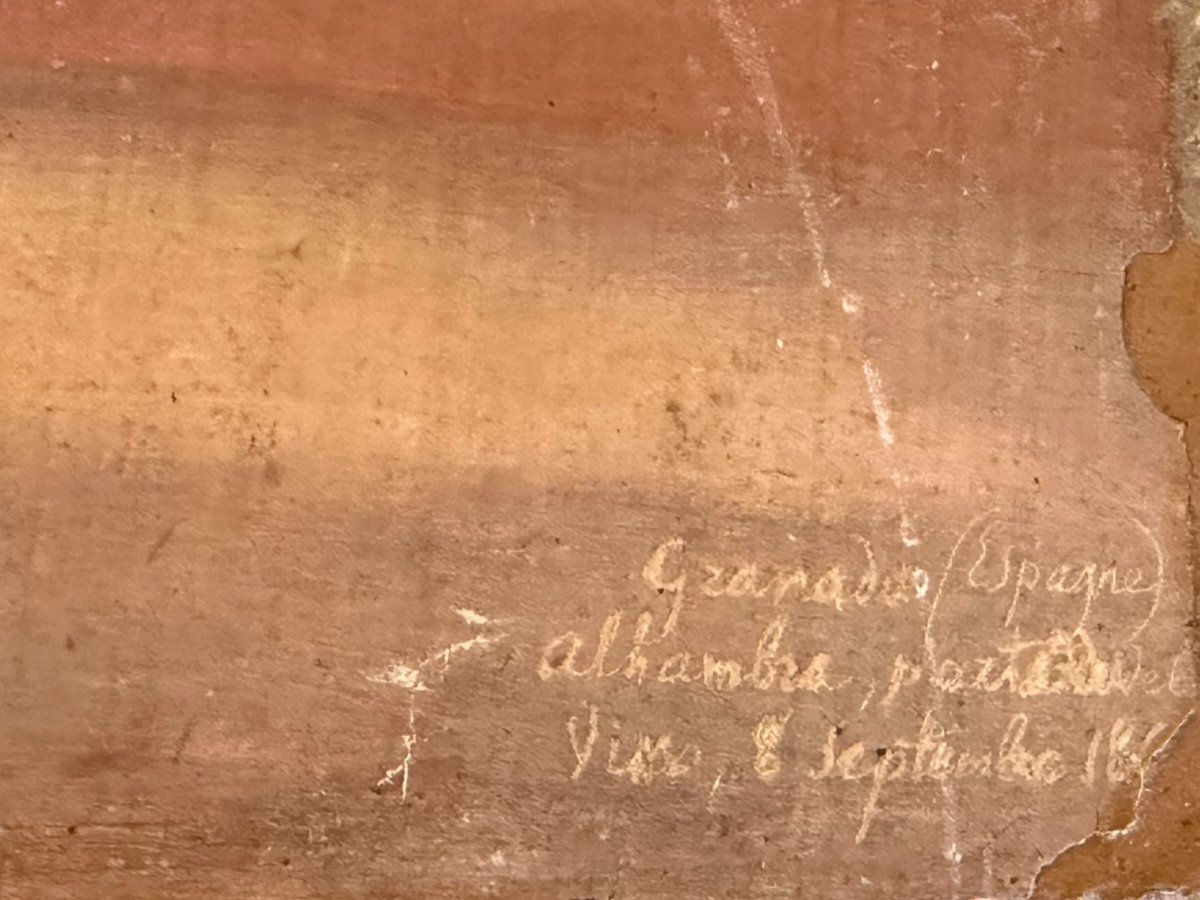 Granada (Espagne)
Alhambra, porta del
Vino, 8 Septembre 18